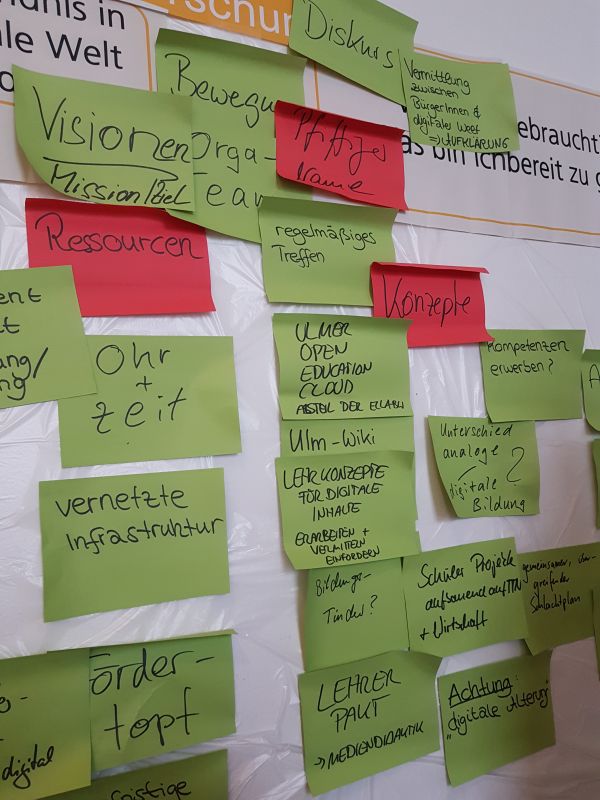 dnis in
ale Welt
Diskurs
Vermittlung
zwischen
BürgerInnen &
digitaler Welt
=> AUFKLÄRUNG
ebraucht
as bin ich bereit zu g
Bewegu
Orga-
Team
Visionen
Mission/Ziel
Pfiffiger
Name
Ressourcen
regelmäßiges
Treffen
Konzepte
ent
t
ung/
ng
Ohr
+
zeit
ULMER
OPEN
EDUCATION
CLOUD
Ulm-Wiki
LEHRKONZEPTE
FÜR DIGITALE
INHALTE
ERARBEITEN +
VERMITTELN
EINFORDERN
Kompetenzen
erwerben?
Unterschied
analoge
digitale ?
Bildung
vernetzte
Infrastruktur
Bildungs-
Tinder?
Schüler Projekte
aufbauend auf TTN
+ Wirtschaft
gemeinsamer, über-
greifender
Schlachtplan
Förder-
topf
digital
LEHRER
PAKT
-> MEDIENDIDAKTIK
Achtung:
"digitale Alterung"